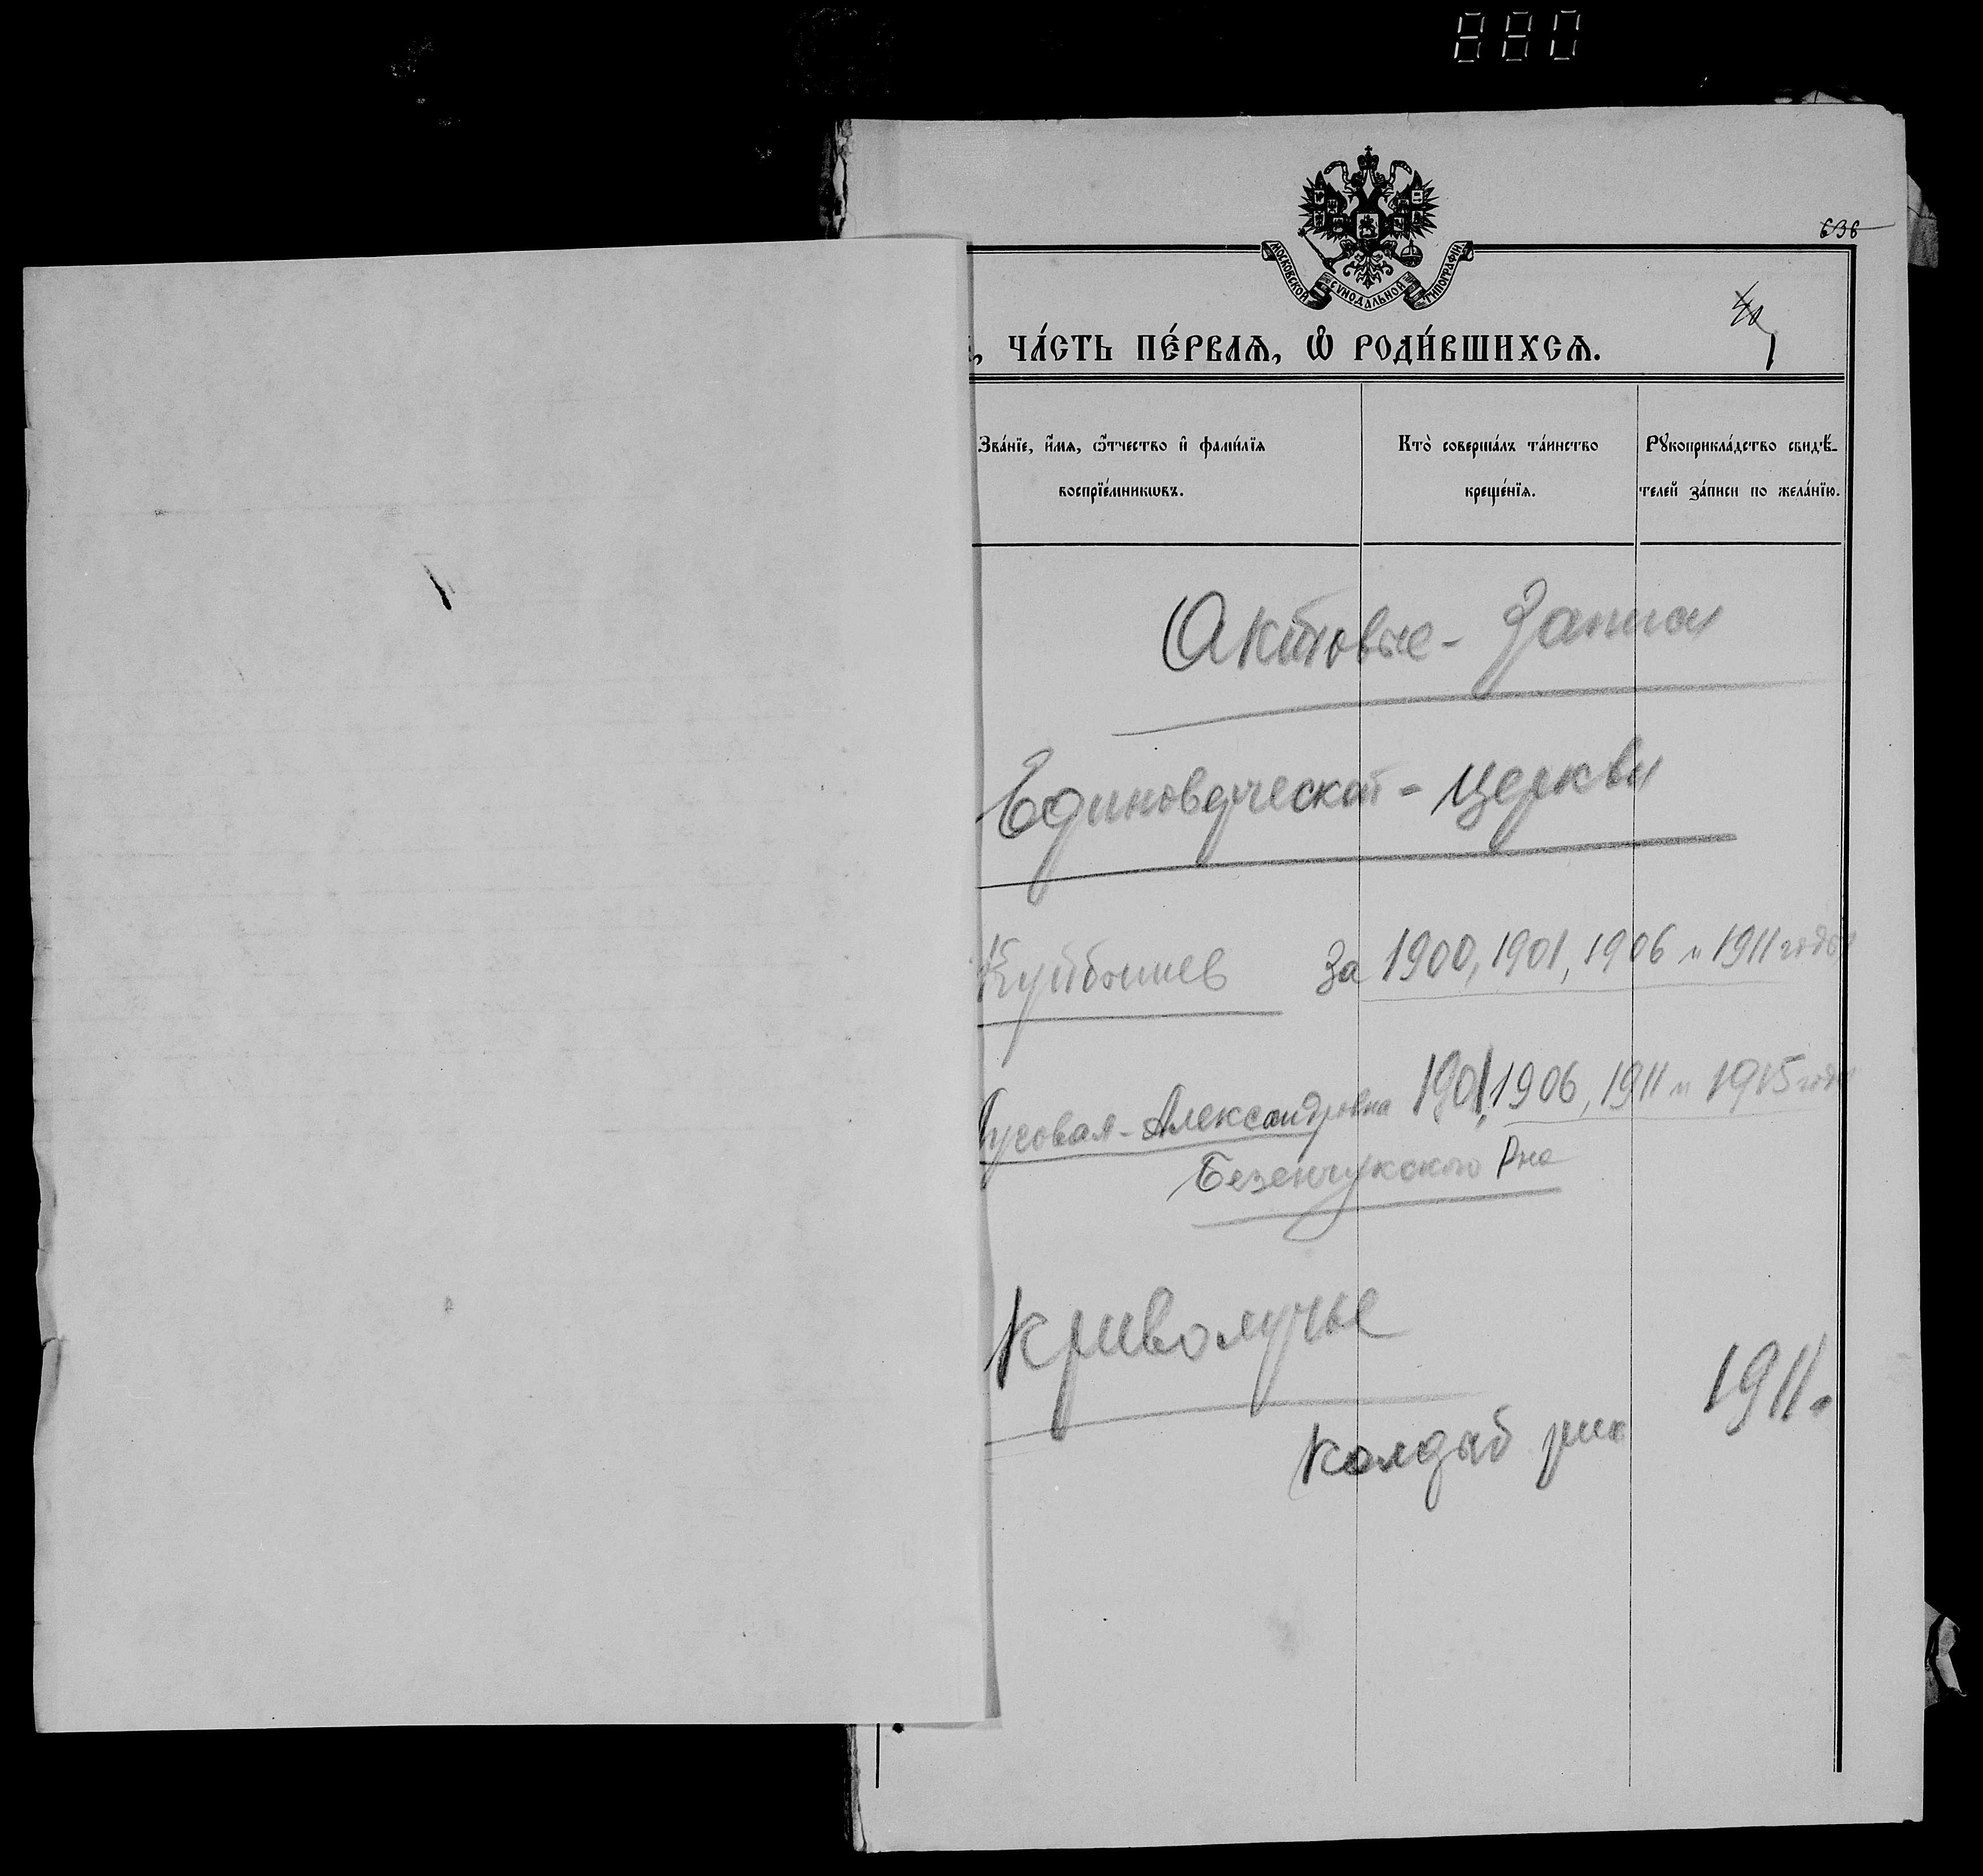 880
636
МОСКОВСКОЙ СѴНОДАЛЬНОЙ ТИПОГРАФІИ
, ЧА́СТЬ ПЕ́РВАѦ, Ѡ҆ РОДИ́ВШИХСѦ.
1
Зва́нїе, и҆́мѧ, ѻ҆́тчество и҆ фами́лїѧ
воспрїе́мникѡвъ.
Кто̀ соверша́лъ та́инство
креще́нїѧ.
Рꙋкоприкла́дство свидѣ́-
телей за́писи по жела́нїю.
Актовые - Записи
Единоверческой - церкви
Куйбышев За 1900, 1901, 1906 и 1911 годы
Александровка 1901, 1906, 1911 и 1915 годы
Безенчукского Рна
Криволучье
1911.